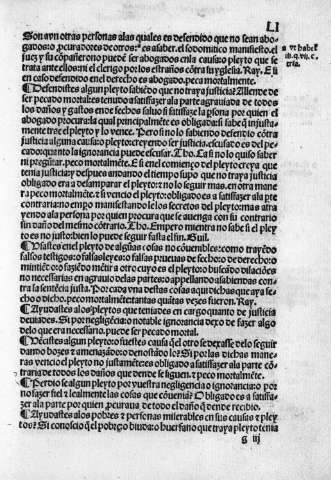 LI
Son avn otras personas alas quales es defendido que no sean abo
gados: o procuradores de otros: es a saber. el sodomitico manifiesto. el
juez y su cõpañero no pued ser abogados enla causa o pleyto que se
trata ante ellos: ni el clerigo por los estraños cõtra su yglesia. Ray. E si
en caso defendido en el derecho es abogado. peca mortalmente.
¶ Defendistes algun pleyto sabiẽdo que no traya justicia? Allende de
ser pecado mortal es tenudo a satisfazer ala parte agrauiada de todos
los daños y gastos
abogado procura: la qual principalmente es obligada: si sabe que injusta
mente trae el pleyto y lo vence. Pero si no lo sabiendo defendio cõtra
justicia alguna causa o pleyto: creyendo ser justicia. escusado es del pe-
cado: quanto la ignorancia puede escusar. Tho. Ca si no lo quiso saber
ni pregũtar. peco mortalmẽte. E si enel comienço del pleyto creya que
tenia justicia: y despues andando el tiempo supo que no traya justicia
obligado era a desamparar el pleyto: z no lo seguir mas. en otra mane
ra peco mortalmẽte. z si vencio el pleyto: obligado es a satisfazer ala pte
contraria: no empo manifestando le los secretos del pleyto: mas atra
yendo ala persona por quien procura que se auenga con su contrario
sin daño del mesmo cõtrario. Tho. Empero mientra no sabe si el pley
to es no justo: bien lo puede seguir fasta el fin. Guil.
¶ Usastes enel pleyto de algũas cosas no cõuenibles: como trayẽdo
falsos testigos: o falsas leyes: o falsas prueuas de hecho: o de derecho: o
mintiẽdo: o faziẽdo mẽtir a otro cuyo es el pleyto: o buscãdo dilaciões
no necessarias en agrauio delas partes: o appellando a sabiendas con
tra la sentẽcia justa. Por cada vna destas cosas aqui dichas que aya se
cho o dicho. peco mortalmẽte tantas quãtas vezes fueron. Ray.
¶ Ayudastes alos pleytos que teniades en cargo quanto de justicia
deuiades. Si por negligẽcia: o notable ignorancia dexo de fazer algo
delo que era necessario. puede ser pecado mortal.
¶ Uẽcistes algun pleyto: o fuestes causa q̃ el otro se dexasse delo seguir
dando bozes z amenazãdo: o denostãdo los? Si por las dichas mane
ras vencio el pleyto no justamẽte: es obligado a satisfazer ala parte cõ-
traria de todos los daños que dende se siguen. z peco mortalmẽte.
¶ Perdio se algun pleyto por vuestra negligencia o ignorancia: o por
no fazer fiel z lealmente las cosas que cõuenia? Obligado es a satisfa-
zer ala parte por quien procuraua de todo el daño q̃ dende recibio.
¶ Ayudastes alos pobres z personas miserables en sus causas z pley
tos? Si conoscio q̃ el pobre: o biuda: o huerfano que traya pleyto tenia
g iij